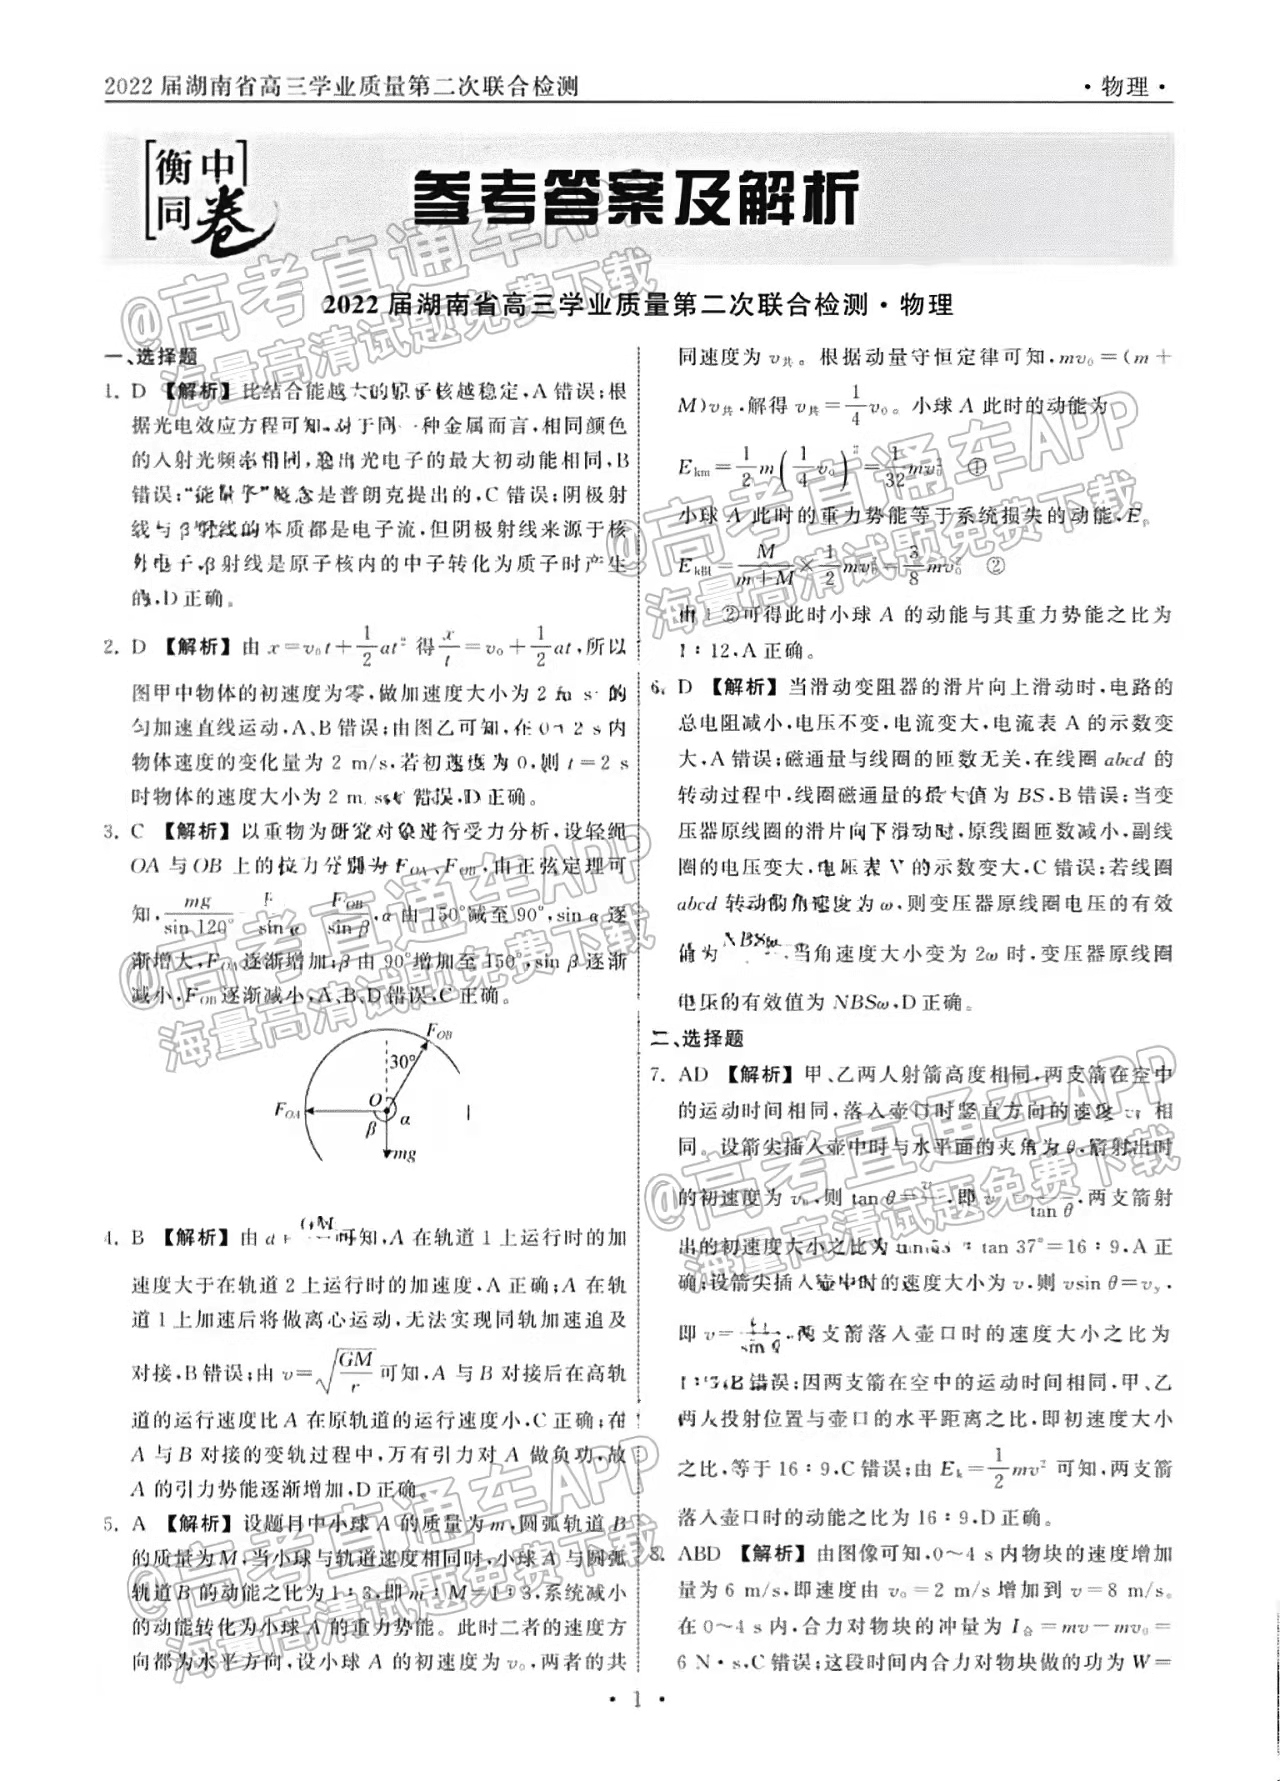 2022届湖南省高三学业质量第二次联合检测
·物理·
衡中
同卷
参考答案及解析
2022届湖南省高三学业质量第二次联合检测·物理
一、选择题
1. D 【解析】比结合能越大的原子核越稳定,A错误;根
据光电效应方程可知,对于同一种金属而言,相同颜色
的入射光频率相同,逸出光电子的最大初动能相同,B
错误;“能量子”概念是普朗克提出的,C错误;阴极射
线与β射线的本质都是电子流,但阴极射线来源于核
外电子,β射线是原子核内的中子转化为质子时产生
的,D正确。
2. D 【解析】由 x=v₀t+1/2at² 得 x/t=v₀+1/2at,所以
图甲中物体的初速度为零,做加速度大小为2 m/s²的
匀加速直线运动,A、B错误;由图乙可知,在0~2 s内
物体速度的变化量为2 m/s,若初速度为0,则t=2 s
时物体的速度大小为2 m/s,C错误,D正确。
3. C 【解析】以重物为研究对象进行受力分析,设轻绳
OA与OB上的拉力分别为F_OA、F_OB,由正弦定理可
知, mg/sin 120° F/sin α F_OB/sin β,α由150°减至90°,sin α逐
渐增大,F_OA逐渐增加;β由90°增加至150°,sin β逐渐
减小,F_OB逐渐减小,A、B、D错误,C正确。
F_OB
30°
F_OA
O
α
β
mg
4. B 【解析】由 GM 可知,A在轨道1上运行时的加
速度大于在轨道2上运行时的加速度,A正确;A在轨
道1上加速后将做离心运动,无法实现同轨加速追及
对接,B错误;由 v=√(GM/r) 可知,A与B对接后在高轨
道的运行速度比A在原轨道的运行速度小,C正确;在
A与B对接的变轨过程中,万有引力对A做负功,故
A的引力势能逐渐增加,D正确。
5. A 【解析】设题目中小球A的质量为m,圆弧轨道B
的质量为M,当小球与轨道速度相同时,小球A与圆弧
轨道B的动能之比为1∶3,即m∶M=1∶3,系统减小
的动能转化为小球A的重力势能。此时二者的速度方
向都为水平方向,设小球A的初速度为v₀,两者的共
同速度为v共。根据动量守恒定律可知,mv₀=(m+
M)v共,解得v共=1/4v₀。小球A此时的动能为
E_km=1/2m(1/4v₀)²=1/32mv₀² ①
小球A此时的重力势能等于系统损失的动能,E_p
E_k损=M/(m+M)×1/2mv₀²=3/8mv₀² ②
由①②可得此时小球A的动能与其重力势能之比为
1∶12,A正确。
6. D 【解析】当滑动变阻器的滑片向上滑动时,电路的
总电阻减小,电压不变,电流变大,电流表A的示数变
大,A错误;磁通量与线圈的匝数无关,在线圈abcd的
转动过程中,线圈磁通量的最大值为BS,B错误;当变
压器原线圈的滑片向下滑动时,原线圈匝数减小,副线
圈的电压变大,电压表V的示数变大,C错误;若线圈
abcd转动的角速度为ω,则变压器原线圈电压的有效
值为 NBSω ,当角速度大小变为2ω时,变压器原线圈
电压的有效值为NBSω,D正确。
二、选择题
7. AD 【解析】甲、乙两人射箭高度相同,两支箭在空中
的运动时间相同,落入壶口时竖直方向的速度v_y相
同。设箭尖插入壶中时与水平面的夹角为θ,箭射出时
的初速度为v₀,则tan θ= ,即 tan θ,两支箭射
出的初速度大小之比为 tan 37°=16∶9,A正
确;设箭尖插入壶中时的速度大小为v,则vsin θ=v_y,
即v= sin θ,两支箭落入壶口时的速度大小之比为
B错误;因两支箭在空中的运动时间相同,甲、乙
两人投射位置与壶口的水平距离之比,即初速度大小
之比,等于16∶9,C错误;由E_k=1/2mv²可知,两支箭
落入壶口时的动能之比为16∶9,D正确。
8. ABD 【解析】由图像可知,0~4 s内物块的速度增加
量为6 m/s,即速度由v₀=2 m/s增加到v=8 m/s。
在0~4 s内,合力对物块的冲量为I合=mv-mv₀=
6 N·s,C错误;这段时间内合力对物块做的功为W=
· 1 ·
@高考直通车APP
海量高清试题免费下载
@高考直通车APP
海量高清试题免费下载
@高考直通车APP
海量高清试题免费下载
@高考直通车APP
海量高清试题免费下载
@高考直通车APP
海量高清试题免费下载